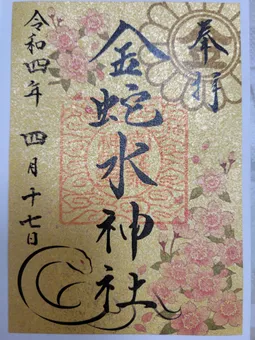 奉拝
金蛇水神社
令和四年 四月十七日